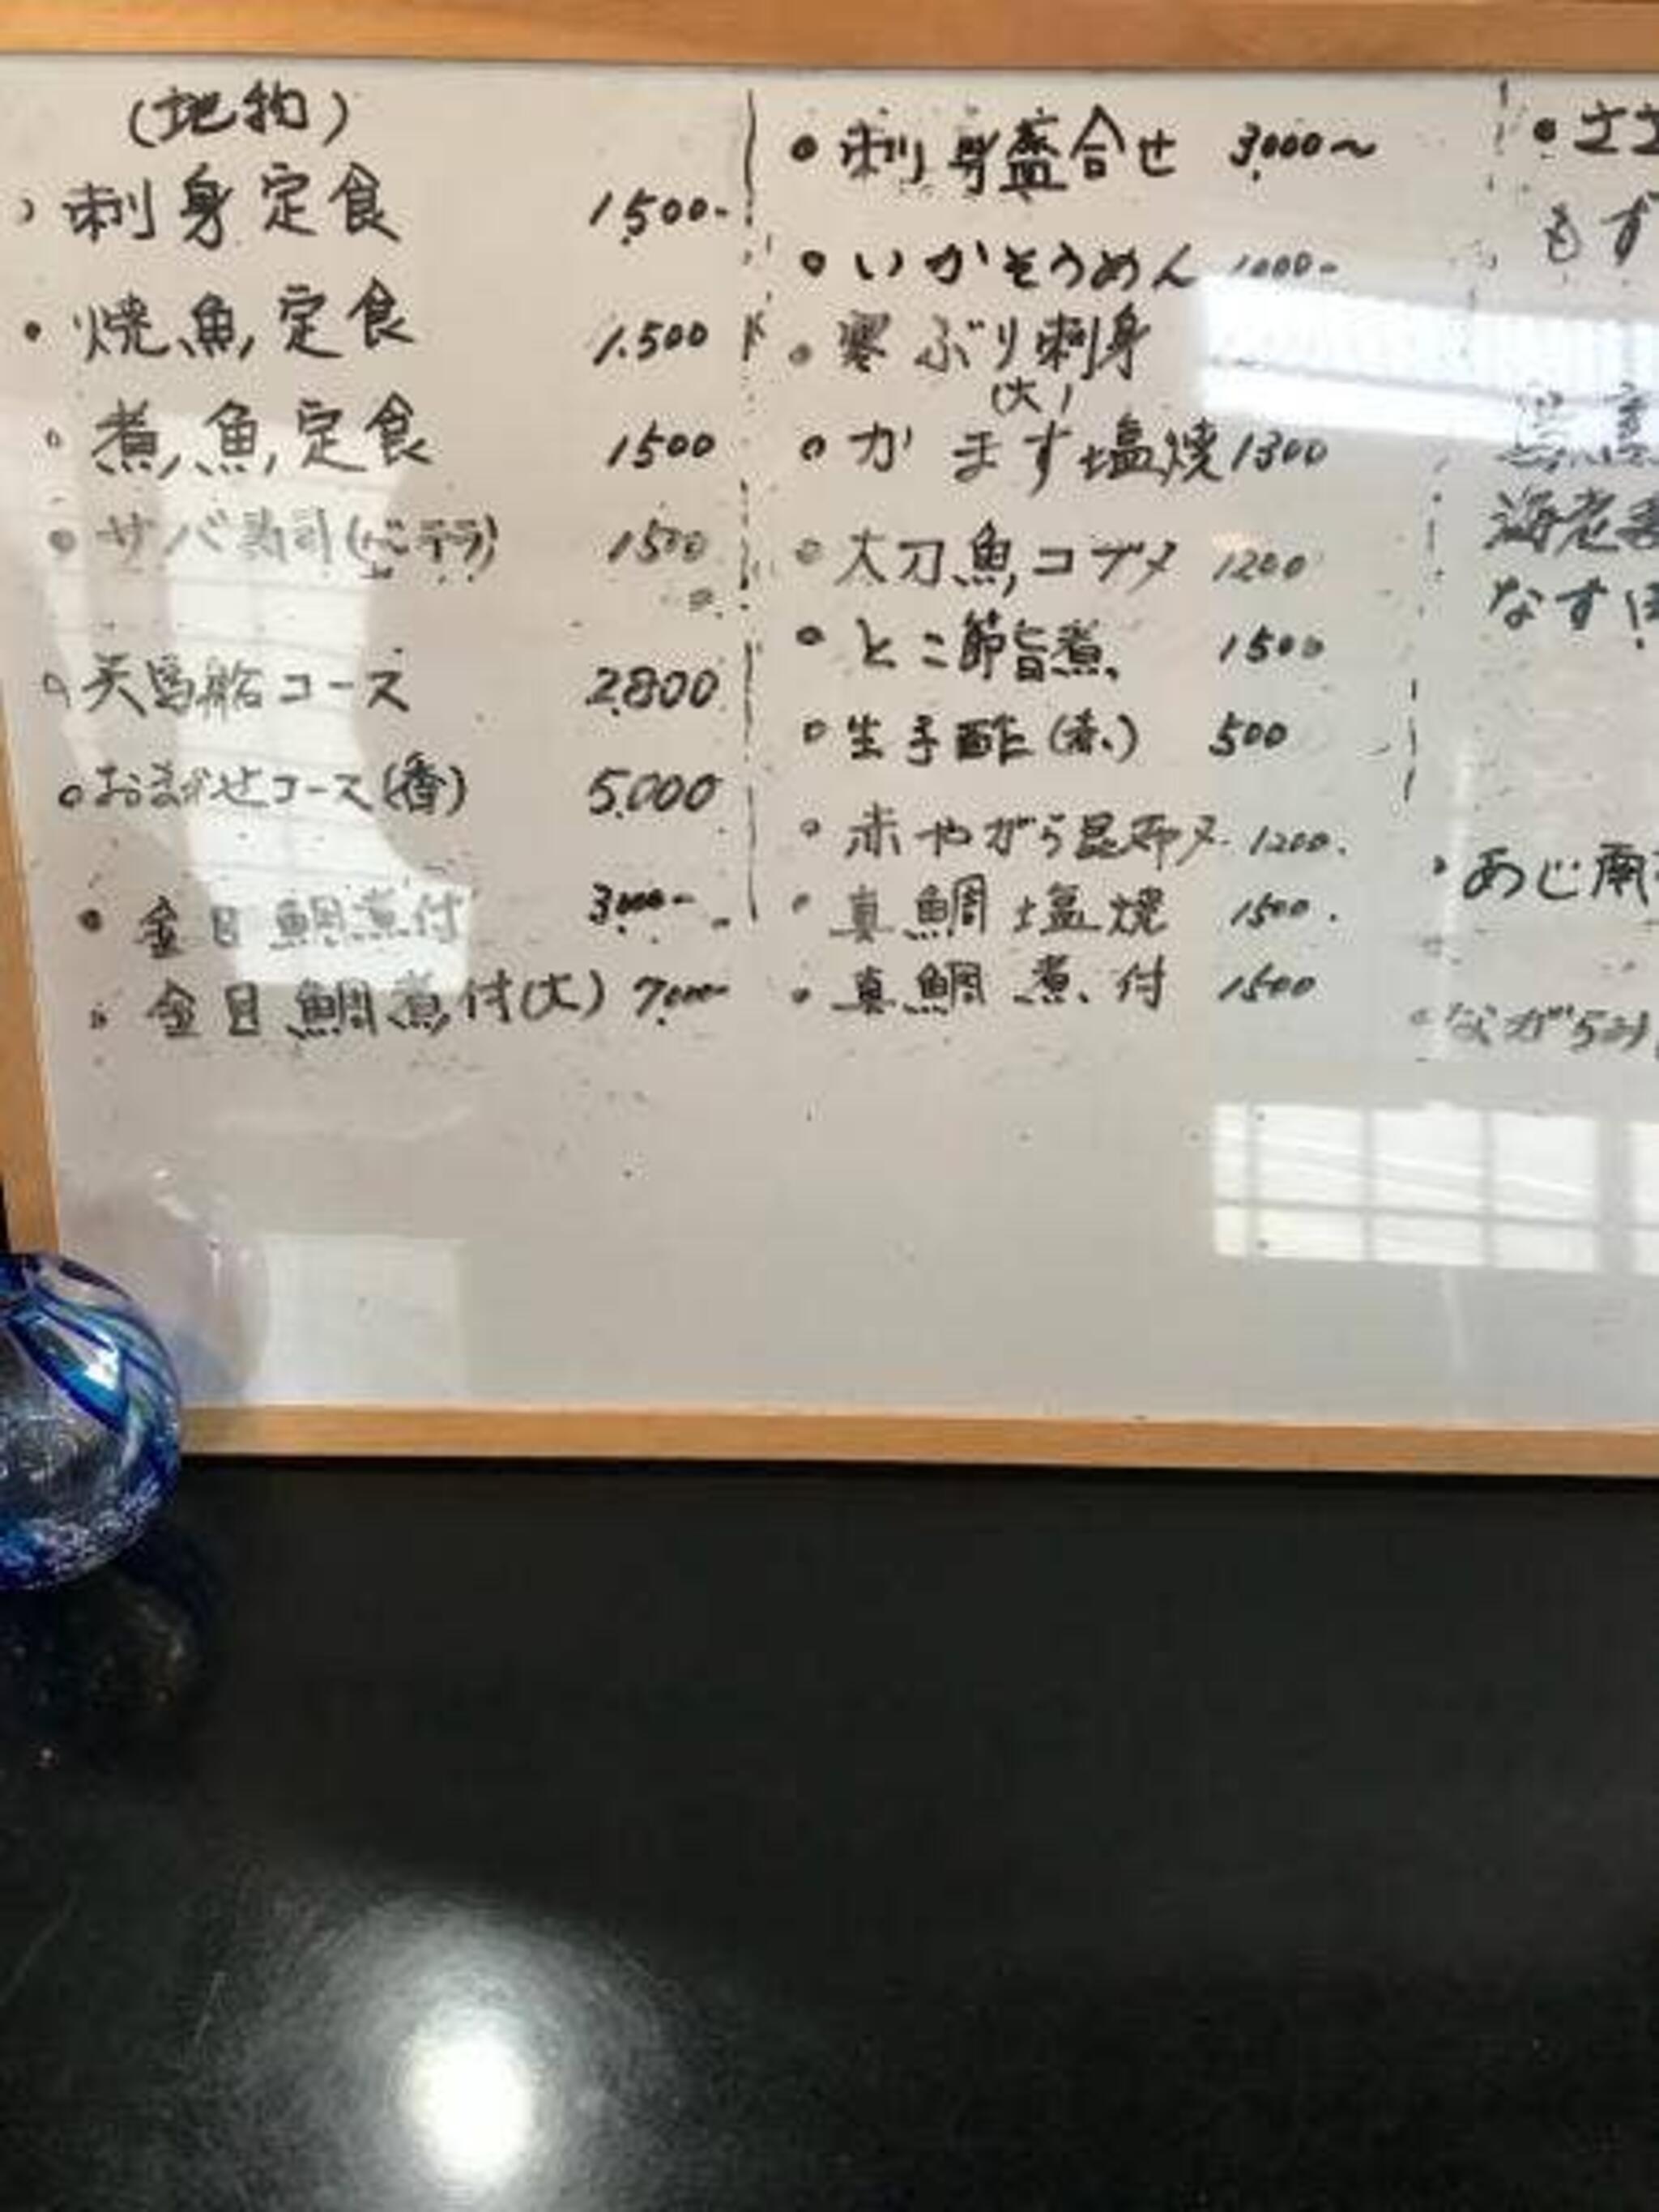 (地物)
刺身定食 1,500-
焼魚定食 1.500
煮魚定食 1500
サバ寿司(バッテラ) 1500
天馬船コース 2.800
おまかせコース(香) 5.000
金目鯛煮付 3000-
金目鯛煮付(大) 7000-
刺身盛合せ 3,000～
いかそうめん 1000-
寒ぶり刺身
(大)
かます塩焼 1300
太刀魚コブメ 1200
とこ節旨煮 1500
生子酢(赤) 500
赤やがら昆布メ 1200.
真鯛塩焼 1500.
真鯛煮付 1500
もず
海老
なす
あじ南
ながらみ